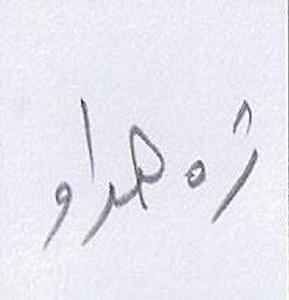 ژەهراو